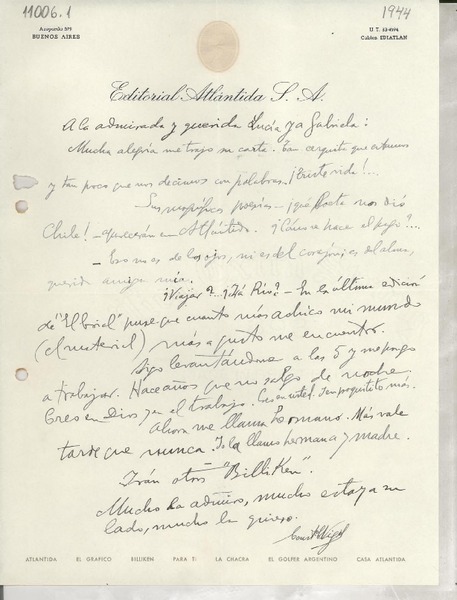 11006.1
1944
Azopardo 579
BUENOS AIRES
U. T. 33-4594
Cables: EDIATLAN
Editorial Atlántida S. A.
A la admirada y querida Lucía ya Gabriela:
Mucha alegría me trajo su carta. Tan cerquita que estamos
y tan poco que nos decimos con palabras. ¡Triste vida!...
Sus magníficas poesías — ¡qué Poeta nos dió
Chile! — aparecerán en Atlántida. ¿Cómo se hace el pago?...
— Eso no es de los ojos, ni es del corazón, es del alma,
querida amiga mía.
¡Viajar?... ¡A Río? — En la última edición
de "El Erial" puse que cuanto más achico mi mundo
(el material) más a gusto me encuentro.
Sigo levantándome a las 5 y me pongo
a trabajar. Hace años que no salgo de noche.
Creo en Dios y en el trabajo. Creo en usted. Un poquitito más.
Ahora me llama hermano. Más vale
tarde que nunca. Yo la llamo hermana y madre.
Irán otros "Billiken".
Mucho la admiro, mucho estoy a su
lado, mucho la quiero.
Const. C. Vigil
ATLANTIDA EL GRAFICO BILLIKEN PARA TI LA CHACRA EL GOLFER ARGENTINO CASA ATLANTIDA